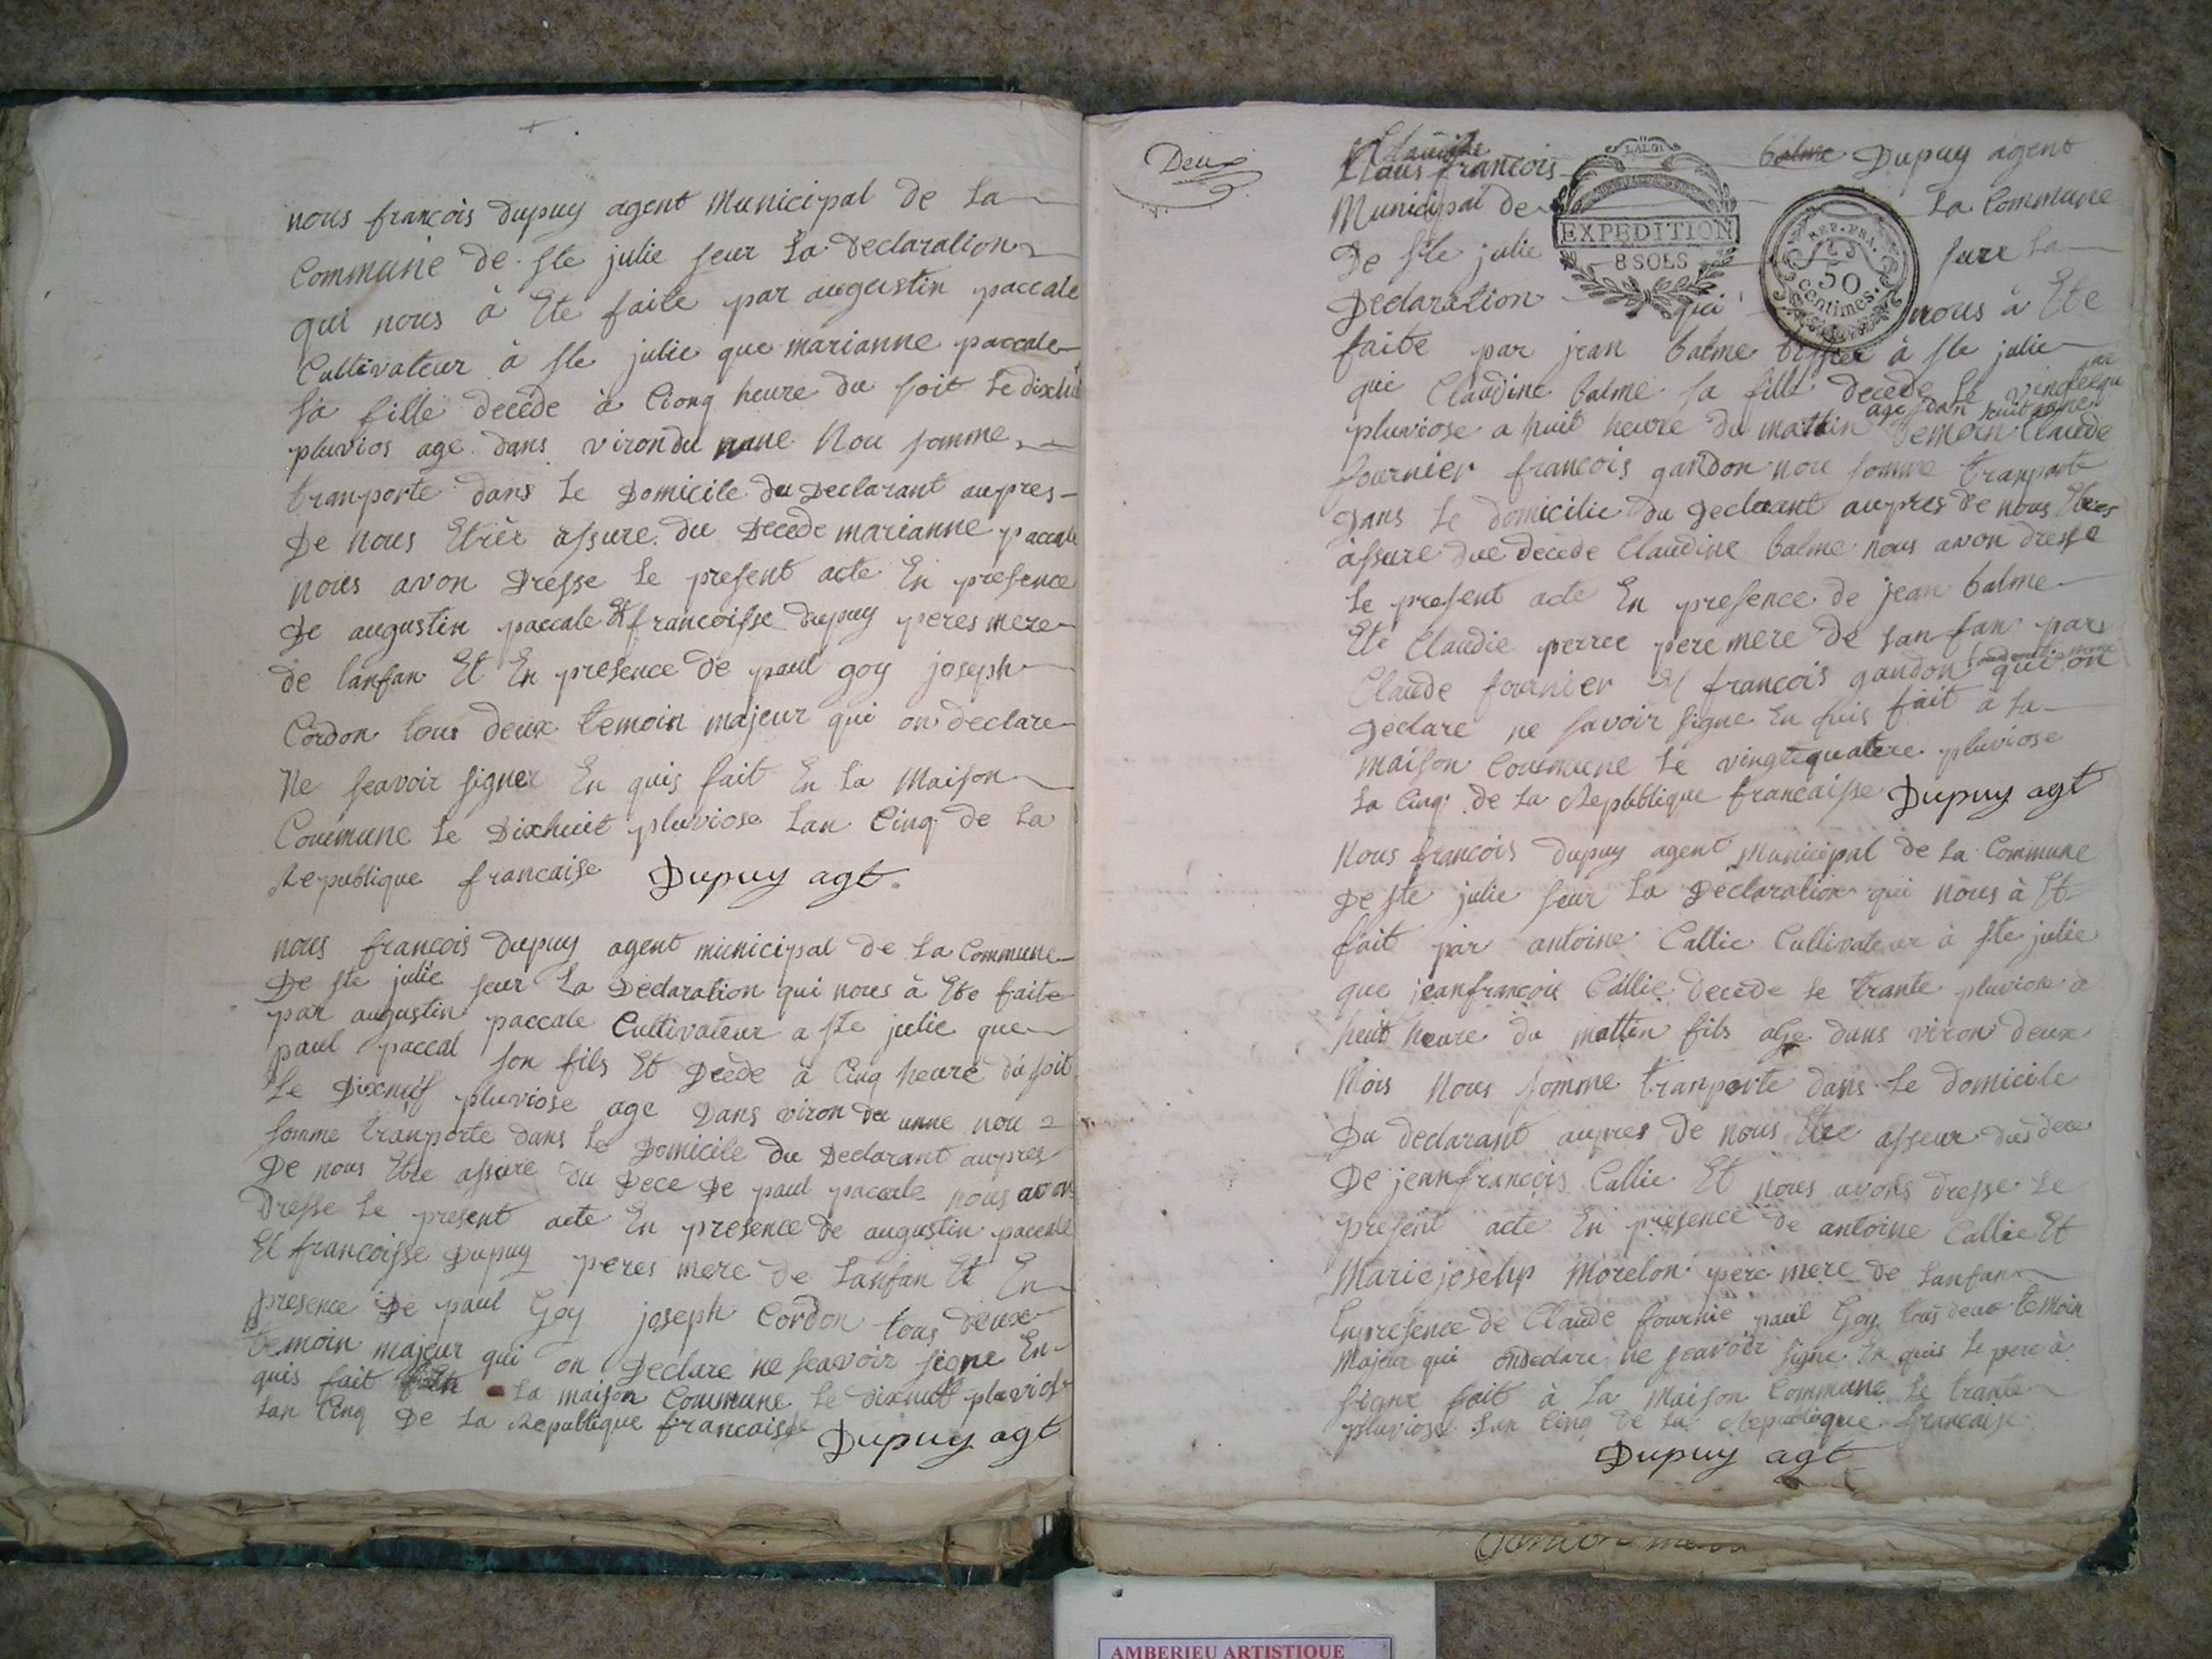 nous françois dupuy agent Municipal de La
Commune de Ste julie seur La Declaration
qui nous à Ete faite par augustin paccale
Cultivateur à Ste julie que marianne paccale
Sa fille decède à Cionq heure du soit Le dixhui
pluvios age dans viron du nane Nou somme
tranporte dans Le Domicile du Declarant aupres
De nous Etrèe assure du Decede marianne paccale
nous avon Dresse Le present acte En presence
De augustin paccale Et francoisse Dupuy peres mere
de lanfan Et En presence de paul goy joseph
Cordon tous deux temoin majeur qui on declare
Ne seavoir signer En quis fait En La Maison
Coummune Le Dixhuit pluviose Lan Cinq de La
Republique francaise Dupuy agt.
nous francois Dupuy agent municipal de La Commune
De Ste julie seur La Declaration qui nous à Ete faite
par augustin paccale Cultivateur a Ste julie que
paul paccal son fils Et Decède à Cinq heure du soit
Le Dixneuf pluviose age Dans viron du unne nou
somme tranporte dans Le Domicile du Declarant aupres
De nous Etre assure du Dece De paul paccale nous avon
Dresse Le present acte En presence de augustin paccale
Et francoisse Dupuy peres mere de Lanfan Et En
presence De paul Goy joseph Cordon tous deux
temoin majeur qui on Declare ne seavoir signe En
quis fait La maison Coummune Le dixneuf pluviose
Lan Cinq De La Republique francaise Dupuy agt
Deux
Claudine
Nous francois balme Dupuy agent
LA LOI
Municipal de La Commune
EXPEDITION
8 SOLS
REP. FRA.
50
centimes.
De Ste julie sure La
Declaration qui nous à Ete
faite par jean balme à Ste julie
qui Claudine balme sa fille decede Le
age dan huit anne
pluviose a huit heure du mattin temoin Claude
fournier francois gandon nou somme tranporte
Dans Le domicilie du Declarant aupres De nous Etres
assure due decede Claudine balme nous avon dresse
Le present acte En presence de jean balme
Ete Claudie perree pere mere De Lanfan par
Claude fournier Et francois gandon qui on
Declare ne savoir signe En quis fait a La
maison Coummune Le vingtequatere pluviose
La Cinq de La Republique francaisse Dupuy agt
Nous francois Dupuy agent Municipal de La Commune
De Ste julie seur La Declaration qui nous à Et
fait par antoine Callie Cultivateur à Ste julie
que jeanfrançois Callie decede Le trante pluviose a
huit heure du mattin fils age dans viron deux
Mois Nous somme tranporte dans Le domicile
Du declarant aupres De nous Etre asseur du dece
De jeanfrancois Callie Et nous avons dresse Le
present acte En presence de antoine Callie Et
Mariejosehp Morelon pere mere de Lanfan
Enpresence de Claude fournie paul Goy tous deux temoin
Majeur qui ondeclare ne seavoir signe En quis Le pere à
signe fait à La Maison Commune Le trante
pluviose Lan Cinq de La Republique francaise
Dupuy agt
AMBERIEU ARTISTIQUE